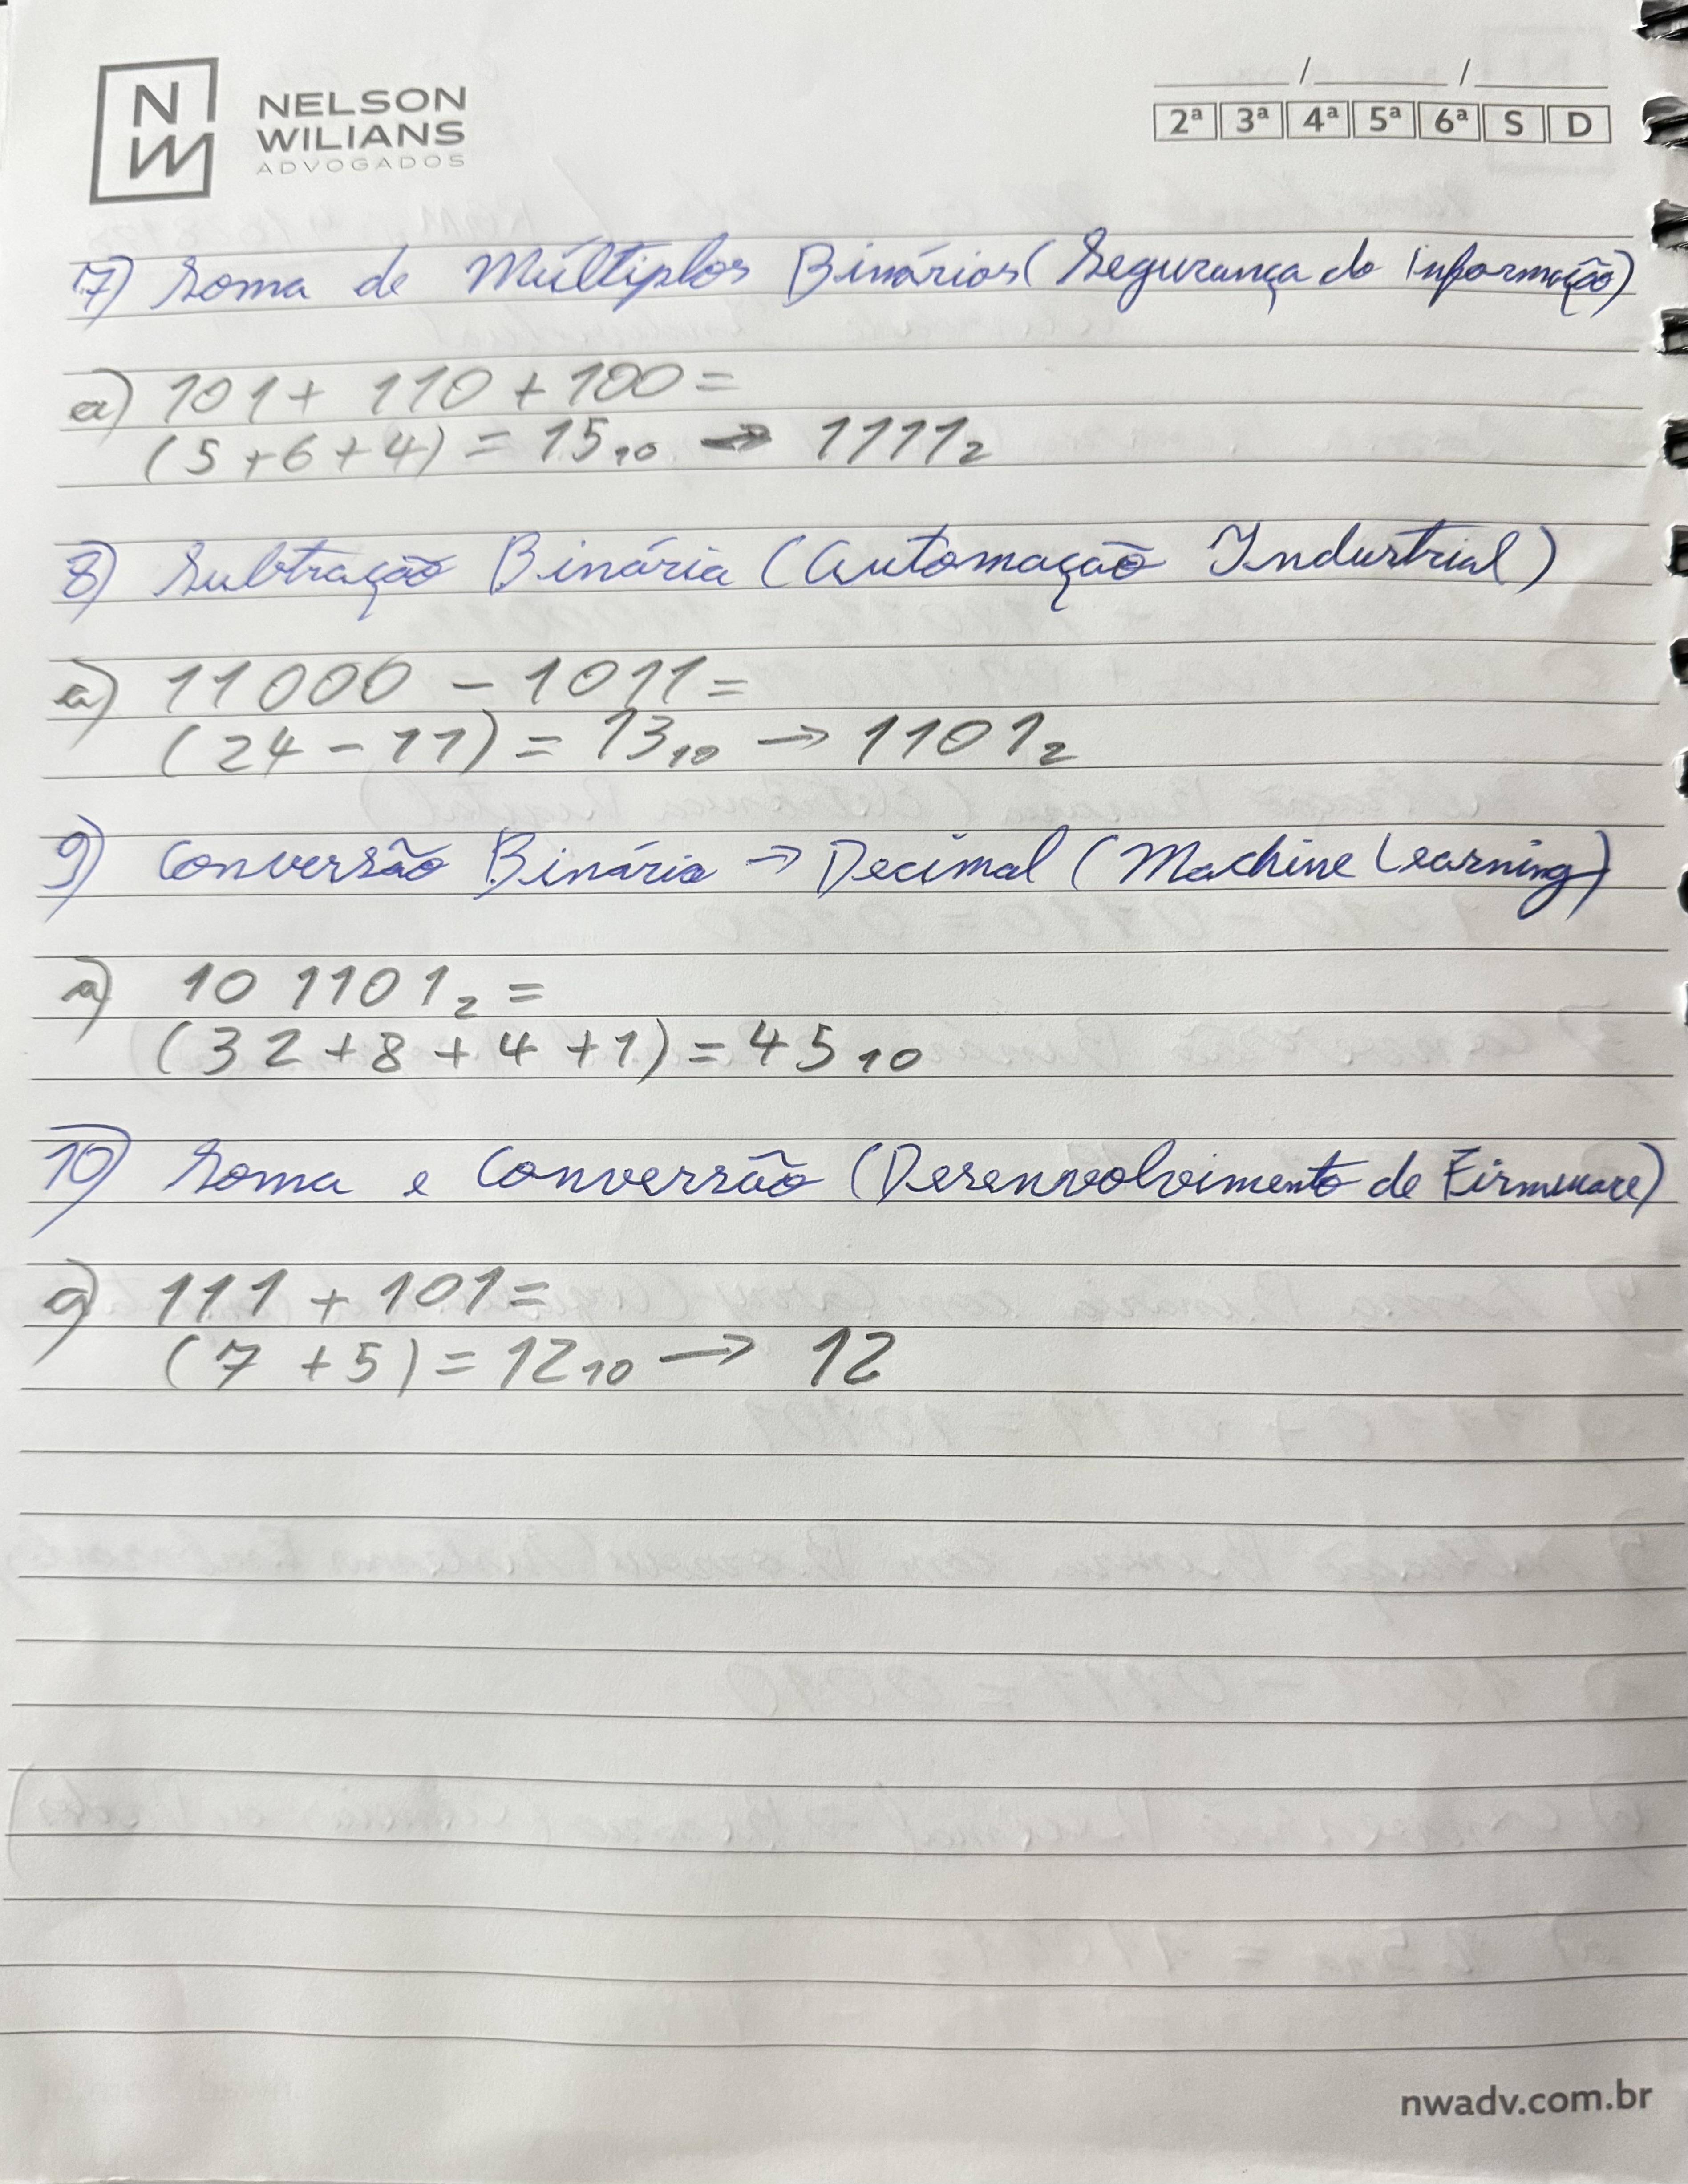 NW
NELSON
WILIANS
ADVOGADOS
/ /
2ª 3ª 4ª 5ª 6ª S D
7) Soma de Múltiplos Binários (Segurança da Informação)
a) 101 + 110 + 100 =
(5 + 6 + 4) = 15₁₀ → 1111₂
8) Subtração Binária (Automação Industrial)
a) 11000 - 1011 =
(24 - 11) = 13₁₀ → 1101₂
9) Conversão Binária → Decimal (Machine Learning)
a) 10 1101₂ =
(32 + 8 + 4 + 1) = 45₁₀
10) Soma e Conversão (Desenvolvimento de Firmware)
a) 111 + 101 =
(7 + 5) = 12₁₀ → 12
nwadv.com.br